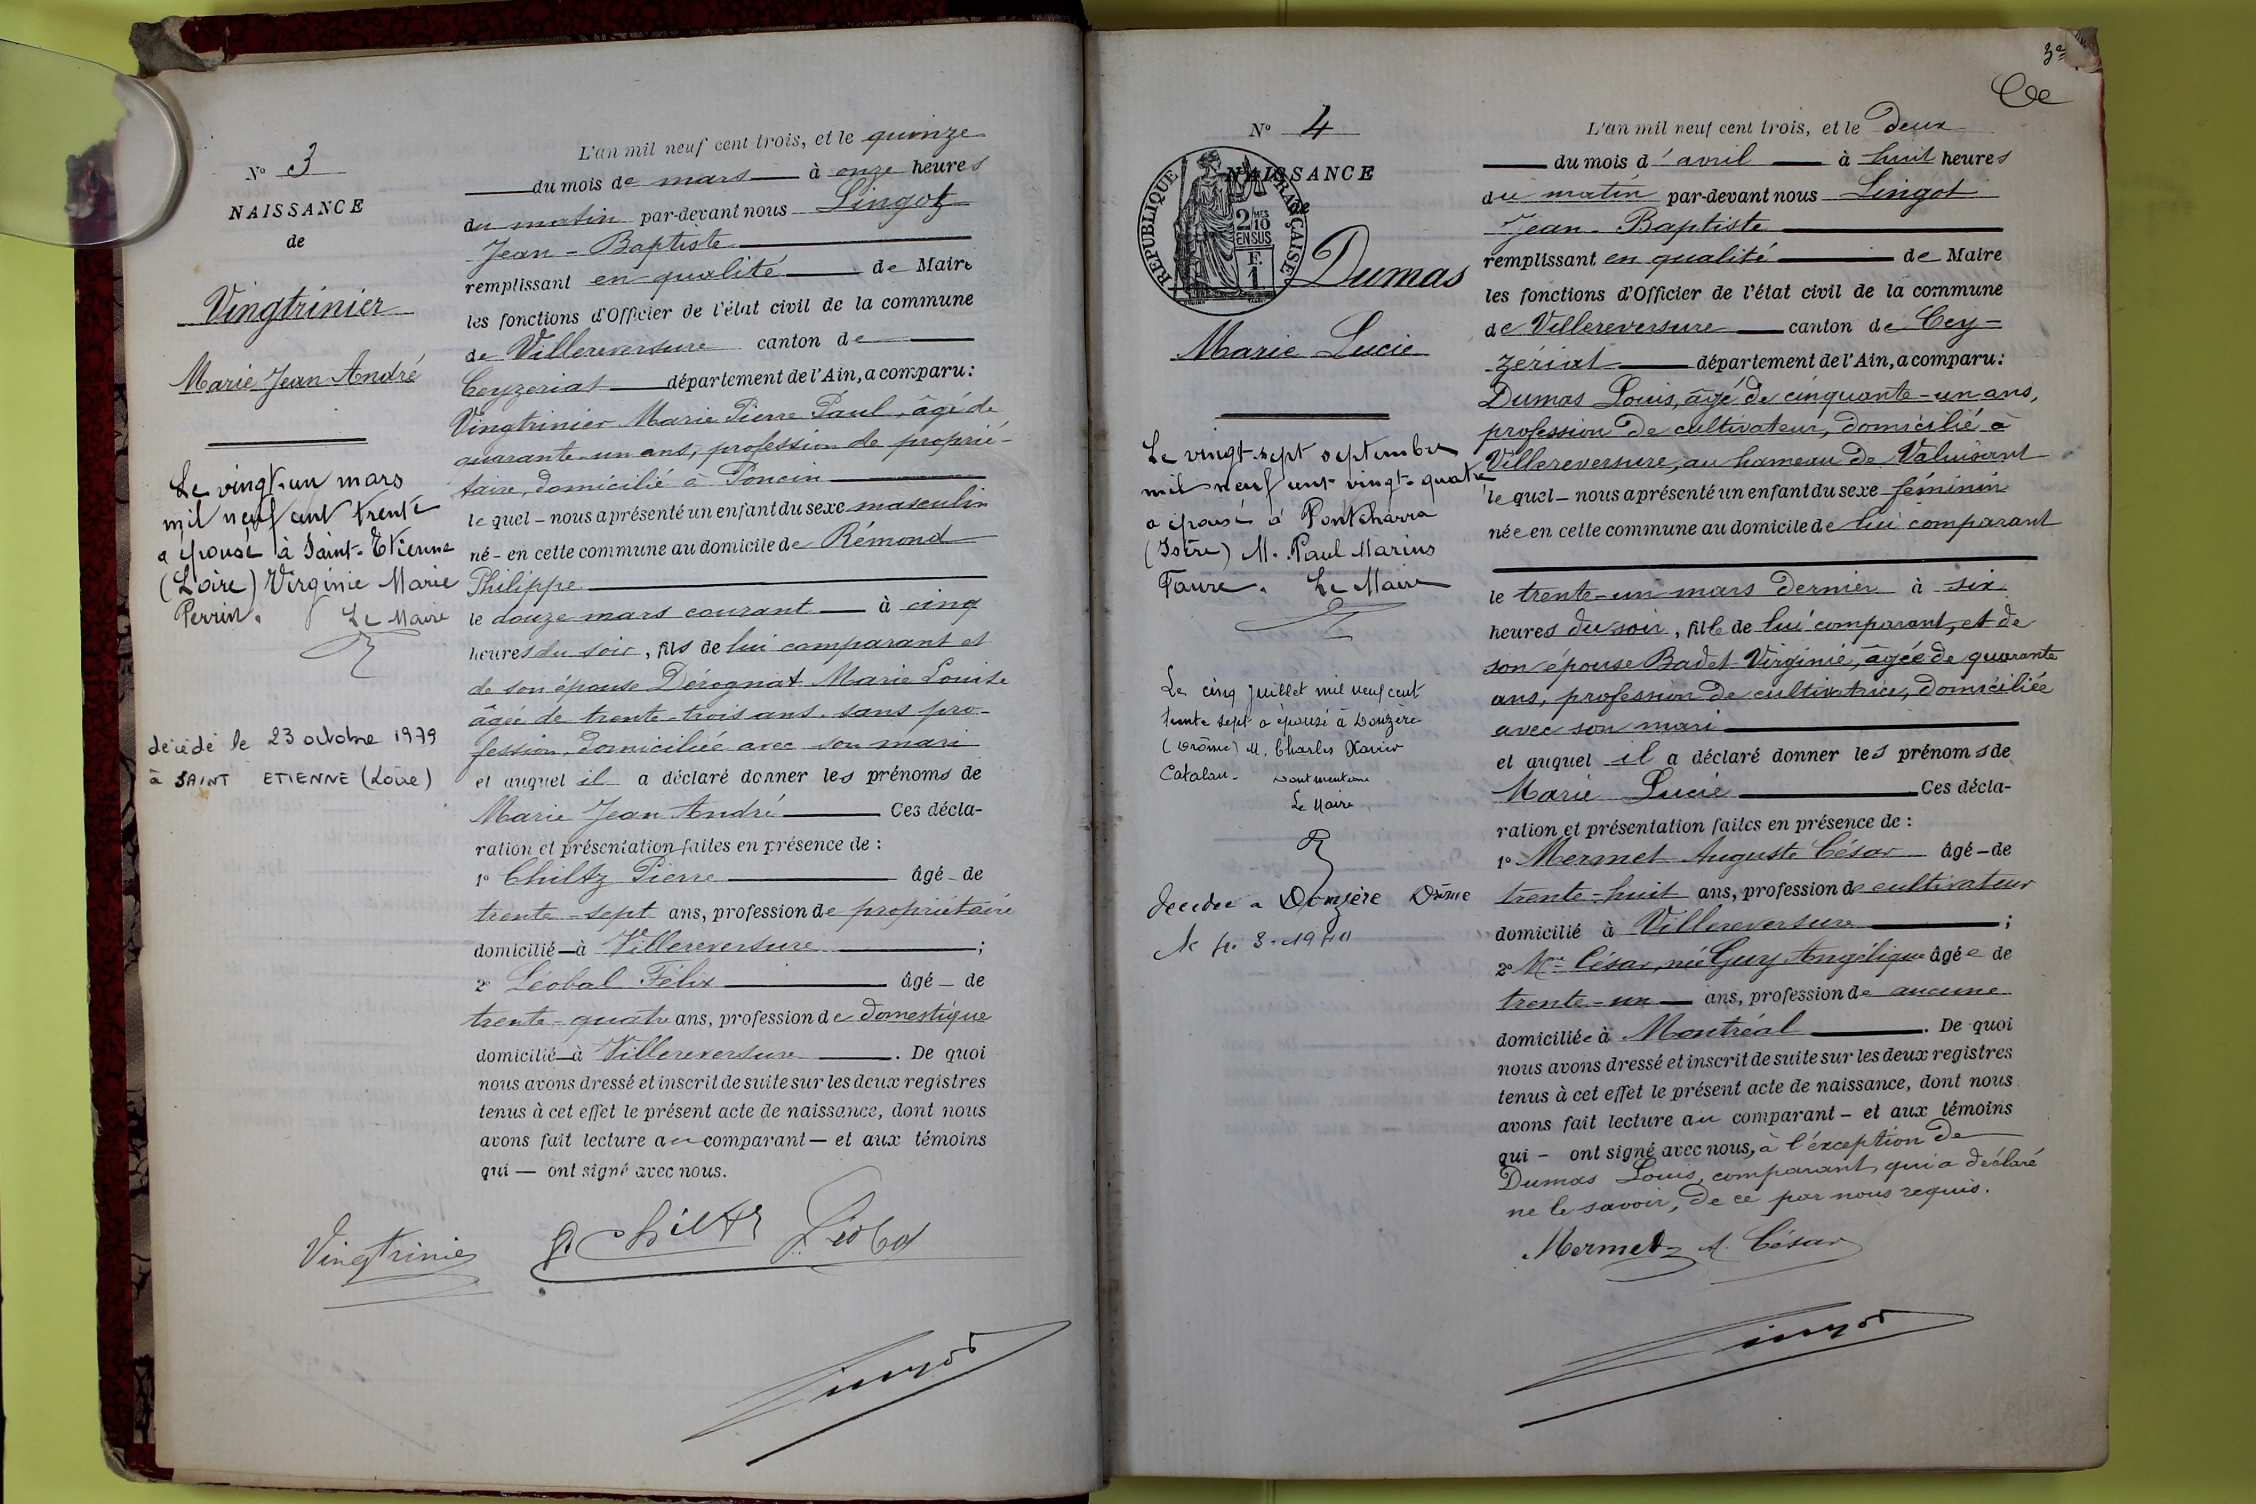 N° 3
NAISSANCE
de
Vingtrinier
Marie Jean André
Le vingt-un mars
mil neuf cent trente
a épousé à Saint-Etienne
(Loire) Virginie Marie
Perrin.
Le Maire
décédé le 23 octobre 1979
à SAINT ETIENNE (Loire)
L'an mil neuf cent trois, et le quinze
du mois de mars à onze heures
du matin par-devant nous Lingot
Jean-Baptiste
remplissant en qualité de Maire
les fonctions d'Officier de l'état civil de la commune
de Villereversure canton de
Ceyzeriat département de l'Ain, a comparu :
Vingtrinier Marie Pierre Paul, âgé de
quarante-un ans, profession de proprié-
taire, domicilié à Poncin
le quel – nous a présenté un enfant du sexe masculin
né – en cette commune au domicile de Rémond
Philippe
le douze mars courant à cinq
heures du soir, fils de lui comparant et
de son épouse Dérognat Marie Louise
âgée de trente-trois ans, sans pro-
fession, domiciliée avec son mari
et auquel il a déclaré donner les prénoms de
Marie Jean André Ces décla-
ration et présentation faites en présence de :
1° Chiltz Pierre âgé – de
trente-sept ans, profession de propriétaire
domicilié – à Villereversure ;
2° Léobal Félix âgé – de
trente-quatre ans, profession de domestique
domicilié – à Villereversure . De quoi
nous avons dressé et inscrit de suite sur les deux registres
tenus à cet effet le présent acte de naissance, dont nous
avons fait lecture au comparant – et aux témoins
qui – ont signé avec nous.
Vingtrinier P. Chiltz Léobal
Lingot
3e
N° 4
NAISSANCE
de
RÉPUBLIQUE FRANÇAISE
2/10 MES
EN SUS
F.
1
Dumas
Marie Lucie
Le vingt-sept septembre
mil neuf cent vingt-quatre
a épousé à Pontcharra
(Isère) M. Paul Marius
Favre. Le Maire
Le cinq juillet mil neuf cent
trente sept a épousé à Donzère
(Drôme) M. Charles Xavier
Catalan. Dont mention
Le Maire
Décédée à Donzère Drôme
L'an mil neuf cent trois, et le deux
du mois d'avril à huit heures
du matin par-devant nous Lingot
Jean-Baptiste
remplissant en qualité de Maire
les fonctions d'Officier de l'état civil de la commune
de Villereversure canton de Cey-
zériat département de l'Ain, a comparu :
Dumas Louis, âgé de cinquante-un ans,
profession de cultivateur, domicilié à
Villereversure, au hameau de Valuisant
le quel – nous a présenté un enfant du sexe féminin
née en cette commune au domicile de lui comparant
le trente-un mars dernier à six
heures du soir, fille de lui comparant, et de
son épouse Badet Virginie, âgée de quarante
ans, profession de cultivatrice, domiciliée
avec son mari
et auquel il a déclaré donner les prénoms de
Marie Lucie Ces décla-
ration et présentation faites en présence de :
1° Mermet Auguste César âgé – de
trente-huit ans, profession de cultivateur
domicilié à Villereversure ;
2° Mme César, née Guy Angélique âgée de
trente-un ans, profession de aucune
domiciliée à Montréal . De quoi
nous avons dressé et inscrit de suite sur les deux registres
tenus à cet effet le présent acte de naissance, dont nous
avons fait lecture au comparant – et aux témoins
qui – ont signé avec nous, à l'éxception de
Dumas Louis, comparant, qui a déclaré
ne le savoir, de ce par nous requis.
Mermet A. César
Lingot